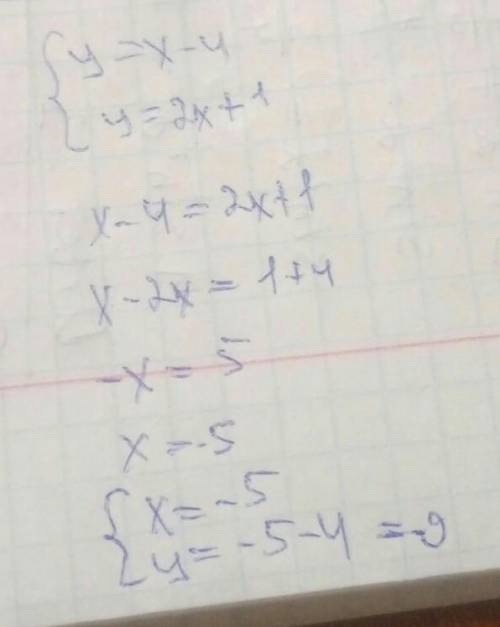 y = x - 4
y = 2x + 1
x - 4 = 2x + 1
x - 2x = 1 + 4
-x = 5
x = -5
x = -5
y = -5 - 4 = -9